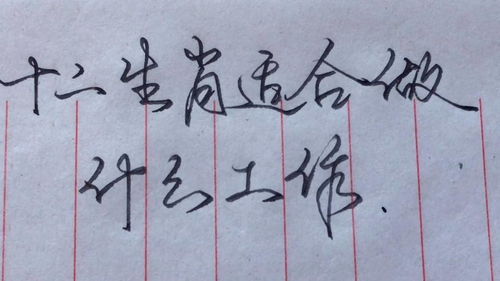 十二生肖适合做
什么工作.